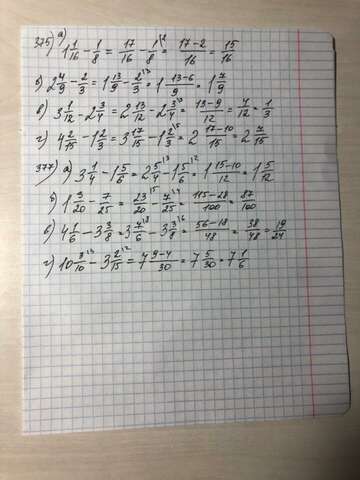 375) а) 1 1/16 - 1/8 = 17/16 - 1/8 \2 = 17-2/16 = 15/16
б) 2 4/9 - 2/3 = 1 13/9 - 2/3 \3 = 1 13-6/9 = 1 7/9
в) 3 1/12 - 2 3/4 = 2 13/12 - 2 3/4 \3 = 13-9/12 = 4/12 = 1/3
г) 4 2/15 - 1 2/3 = 3 17/15 - 1 2/3 \5 = 2 17-10/15 = 2 7/15
377) а) 3 1/4 - 1 5/6 = 2 5/4 \3 - 1 5/6 \2 = 1 15-10/12 = 1 5/12
б) 1 3/20 - 7/25 = 23/20 \5 - 7/25 \4 = 115-28/100 = 87/100
в) 4 1/6 - 3 3/8 = 3 7/6 \8 - 3 3/8 \6 = 56-18/48 = 38/48 = 19/24
г) 10 3/10 \3 - 3 2/15 \2 = 7 9-4/30 = 7 5/30 = 7 1/6